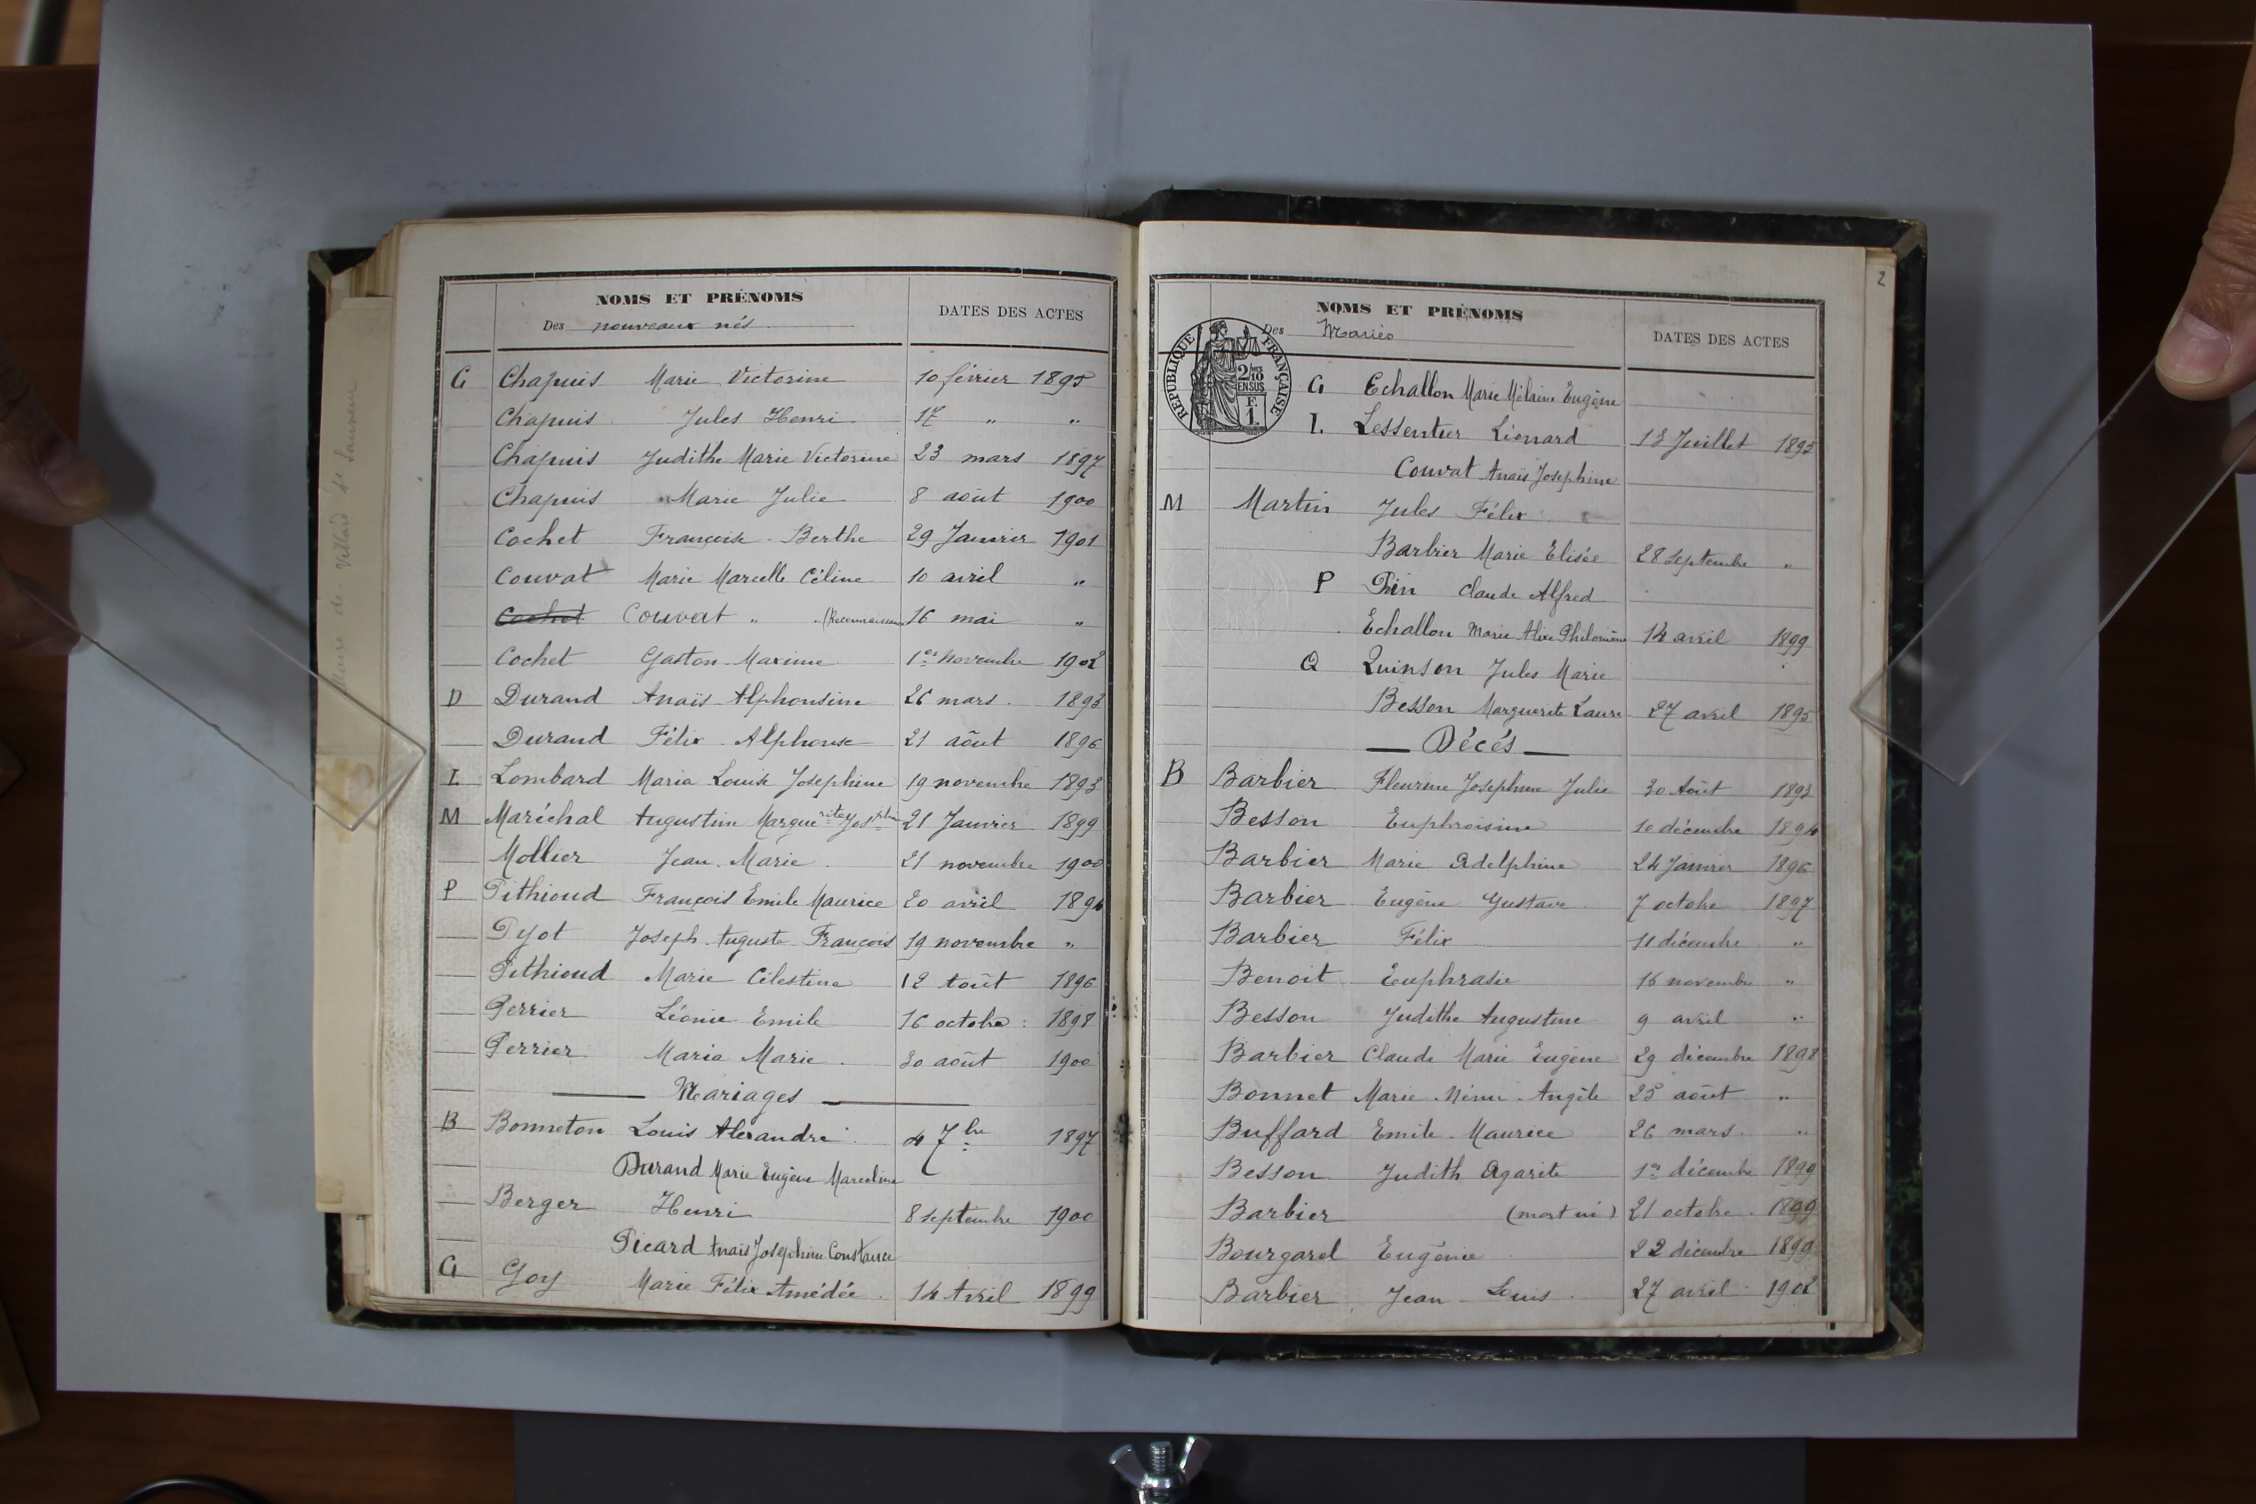 NOMS ET PRÉNOMS
Des nouveaux nés
DATES DES ACTES
C Chapuis Marie Victorine 10 février 1895
Chapuis Jules Henri 17 " "
Chapuis Judithe Marie Victorine 23 mars 1897
Chapuis Marie Julie 8 août 1900
Cochet Françoise Berthe 29 Janvier 1901
Couvat Marie Marcelle Céline 10 avril "
Cochet Couvat " (Reconnaissance 16 mai "
Cochet Gaston Maxime 1er novembre 1902
D Durand Anaïs Alphonsine 26 mars 1893
Durand Félix Alphonse 21 août 1896
L Lombard Maria Louise Josephine 19 novembre 1893
M Maréchal Augustin Marguerite 21 Janvier 1899
Mollier Jean Marie 21 novembre 1900
P Pithioud François Emile Maurice 20 avril 1894
Pyot Joseph Auguste François 19 novembre "
Pithioud Marie Célestine 12 Août 1896
Perrier Léonie Emile 16 octobre 1898
Perrier Maria Marie 30 août 1900
Mariages
B Bonneton Louis Alexandre 4 7bre 1897
Durand Marie Eugène Marceline
Berger Henri 8 septembre 1900
Picard Anaïs Joséphine Constance
G Goy Marie Félix Amédée 14 Avril 1899
2
NOMS ET PRÉNOMS
Des Mariés
DATES DES ACTES
RÉPUBLIQUE FRANÇAISE
2/10
EN SUS
F.
1.
G Echallon Marie Mélanie Eugène
L Lessentier Léonard 13 Juillet 1895
Couvat Anaïs Josephine
M Martin Jules Félix
Barbier Marie Elisée 28 septembre "
P Pin Claude Alfred
Echallon Marie Alix Philomène 14 avril 1899
Q Quinson Jules Marie
Besson Marguerite Laure 27 avril 1895
Décés
B Barbier Fleurine Josephine Julie 30 Août 1893
Besson Euphroisine 10 décembre 1894
Barbier Marie Adelphine 24 Janvier 1896
Barbier Eugène Gustave 7 octobre 1897
Barbier Félix 11 décembre "
Benoit Euphrasie 16 novembre "
Besson Judithe Augustine 9 avril "
Barbier Claude Marie Eugène 29 décembre 1898
Bonnet Marie Angèle 25 août "
Buffard Emile Maurice 26 mars "
Besson Judith Agarite 1er décembre 1899
Barbier (mort né) 21 octobre 1899
Bourgarel Eugénie 22 décembre 1899
Barbier Jean Louis 27 avril 1902